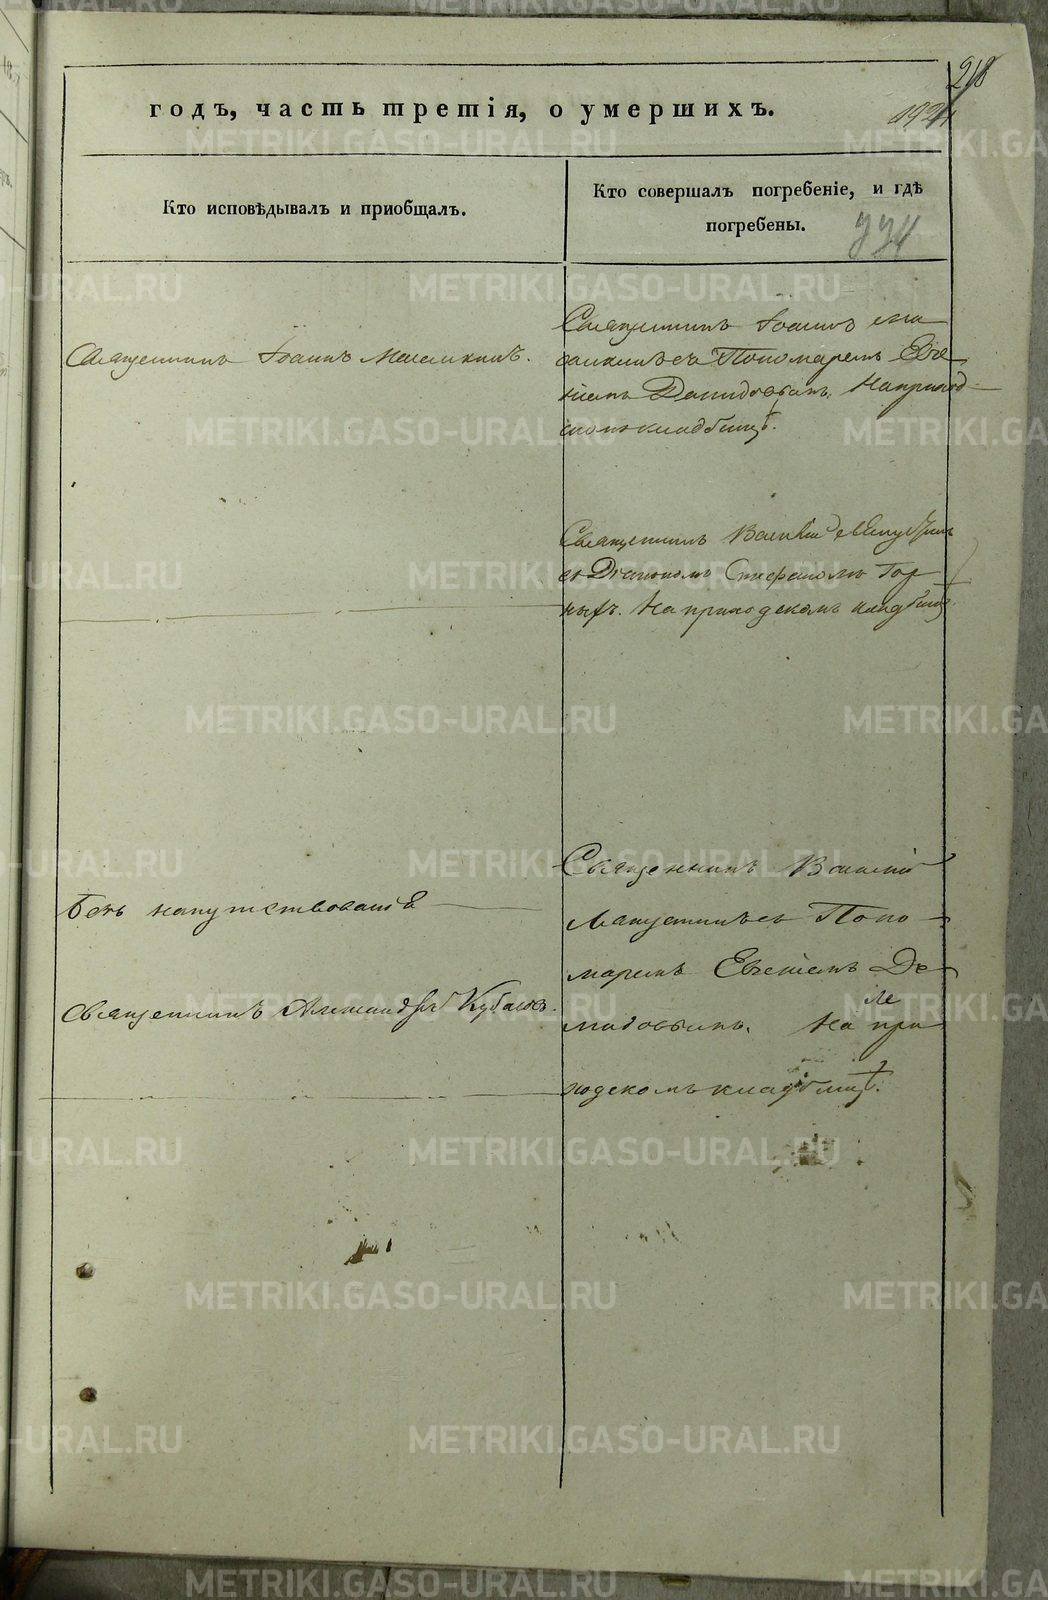 годъ, часть третія, о умершихъ.
218
Кто исповѣдывалъ и приобщалъ.
Кто совершалъ погребеніе, и гдѣ
погребены.
334
Священникъ Іоаннъ
Священникъ Іоаннъ
съ Пономаремъ Евѳе
німъ Демидовымъ. На приход
скомъ кладбищѣ.
Священникъ Василій
съ Діакономъ Стефаномъ Гор
ныхъ. На приходскомъ кладбищѣ.
Безъ напутствованія
Священникъ Александръ Кубасовъ.
Священникъ Василій
съ Поно
маремъ Евѳеніемъ Де
мидовымъ. На при
ходскомъ кладбищѣ.
METRIKI.GASO-URAL.RU